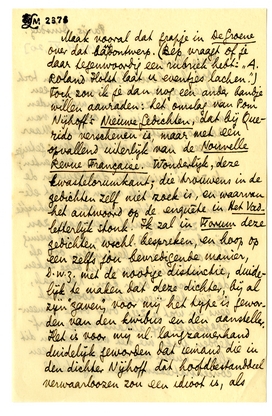 M 2876
Maak vooral dat grapje in De Groene
over dat bandontwerp. (Bep vraagt of je
daar tegenwoordig een rubriek hebt: „A.
Roland Holst laat u eventjes lachen.")
Toch zou ik je dan nog een ander bandje
willen aanraden: het omslag van Pom
Nijhoff's Nieuwe Gedichten, dat bij Que-
rido verschenen is, maar met een
opvallend uiterlijk van de Nouvelle
Revue Française. Wonderlijk, deze
kwastelorumkant; die trouwens in de
gedichten zelf niet zoek is, en waarvan
het antwoord op de enquête in Het Vad.
letterlijk stonk! Ik zal in Forum deze
gedichten wschl. bespreken, en hoop op
een zelfs jou bevredigende manier,
d.w.z. met de noodige distinctie, duide-
lijk te maken dat deze dichter, bij al
zijn „gaven", voor mij het type is gewor-
den van den kwibus en den aansteller.
Het is voor mij nl. langzamerhand
duidelijk geworden dat iemand die in
den dichter Nijhoff dit hoofdbestanddeel
verwaarloozen zou een idioot is, als